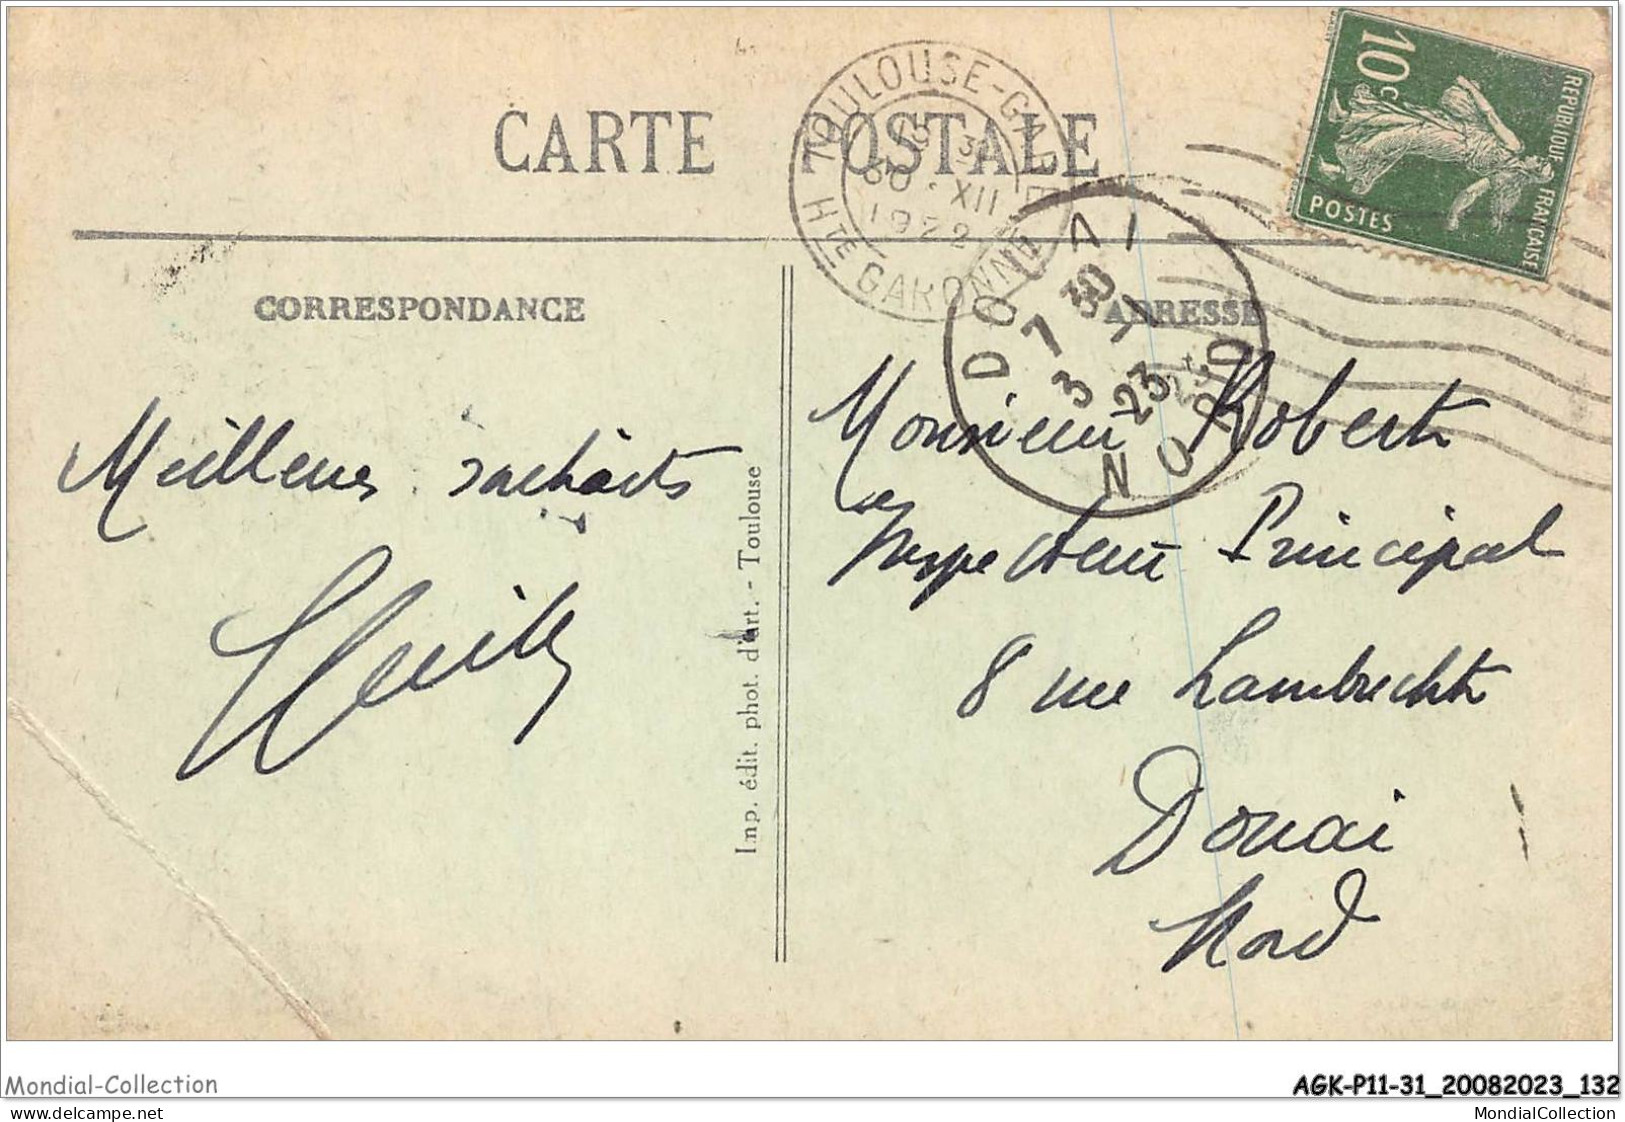 CARTE POSTALE
TOULOUSE-GARE
15 30
30 · XII
1922
HTE GARONNE
10c
REPUBLIQUE FRANÇAISE
POSTES
DOUAI
7 30
3 - 1
23
NORD
CORRESPONDANCE
ADRESSE
Meilleurs souhaits
Imp. édit. phot. d'art. - Toulouse
Monsieur Robert
Inspecteur Principal
8 rue Lambrecht
Douai
Nord
Mondial-Collection
AGK-P11-31_20082023_132
MondialCollection
MondialCollection